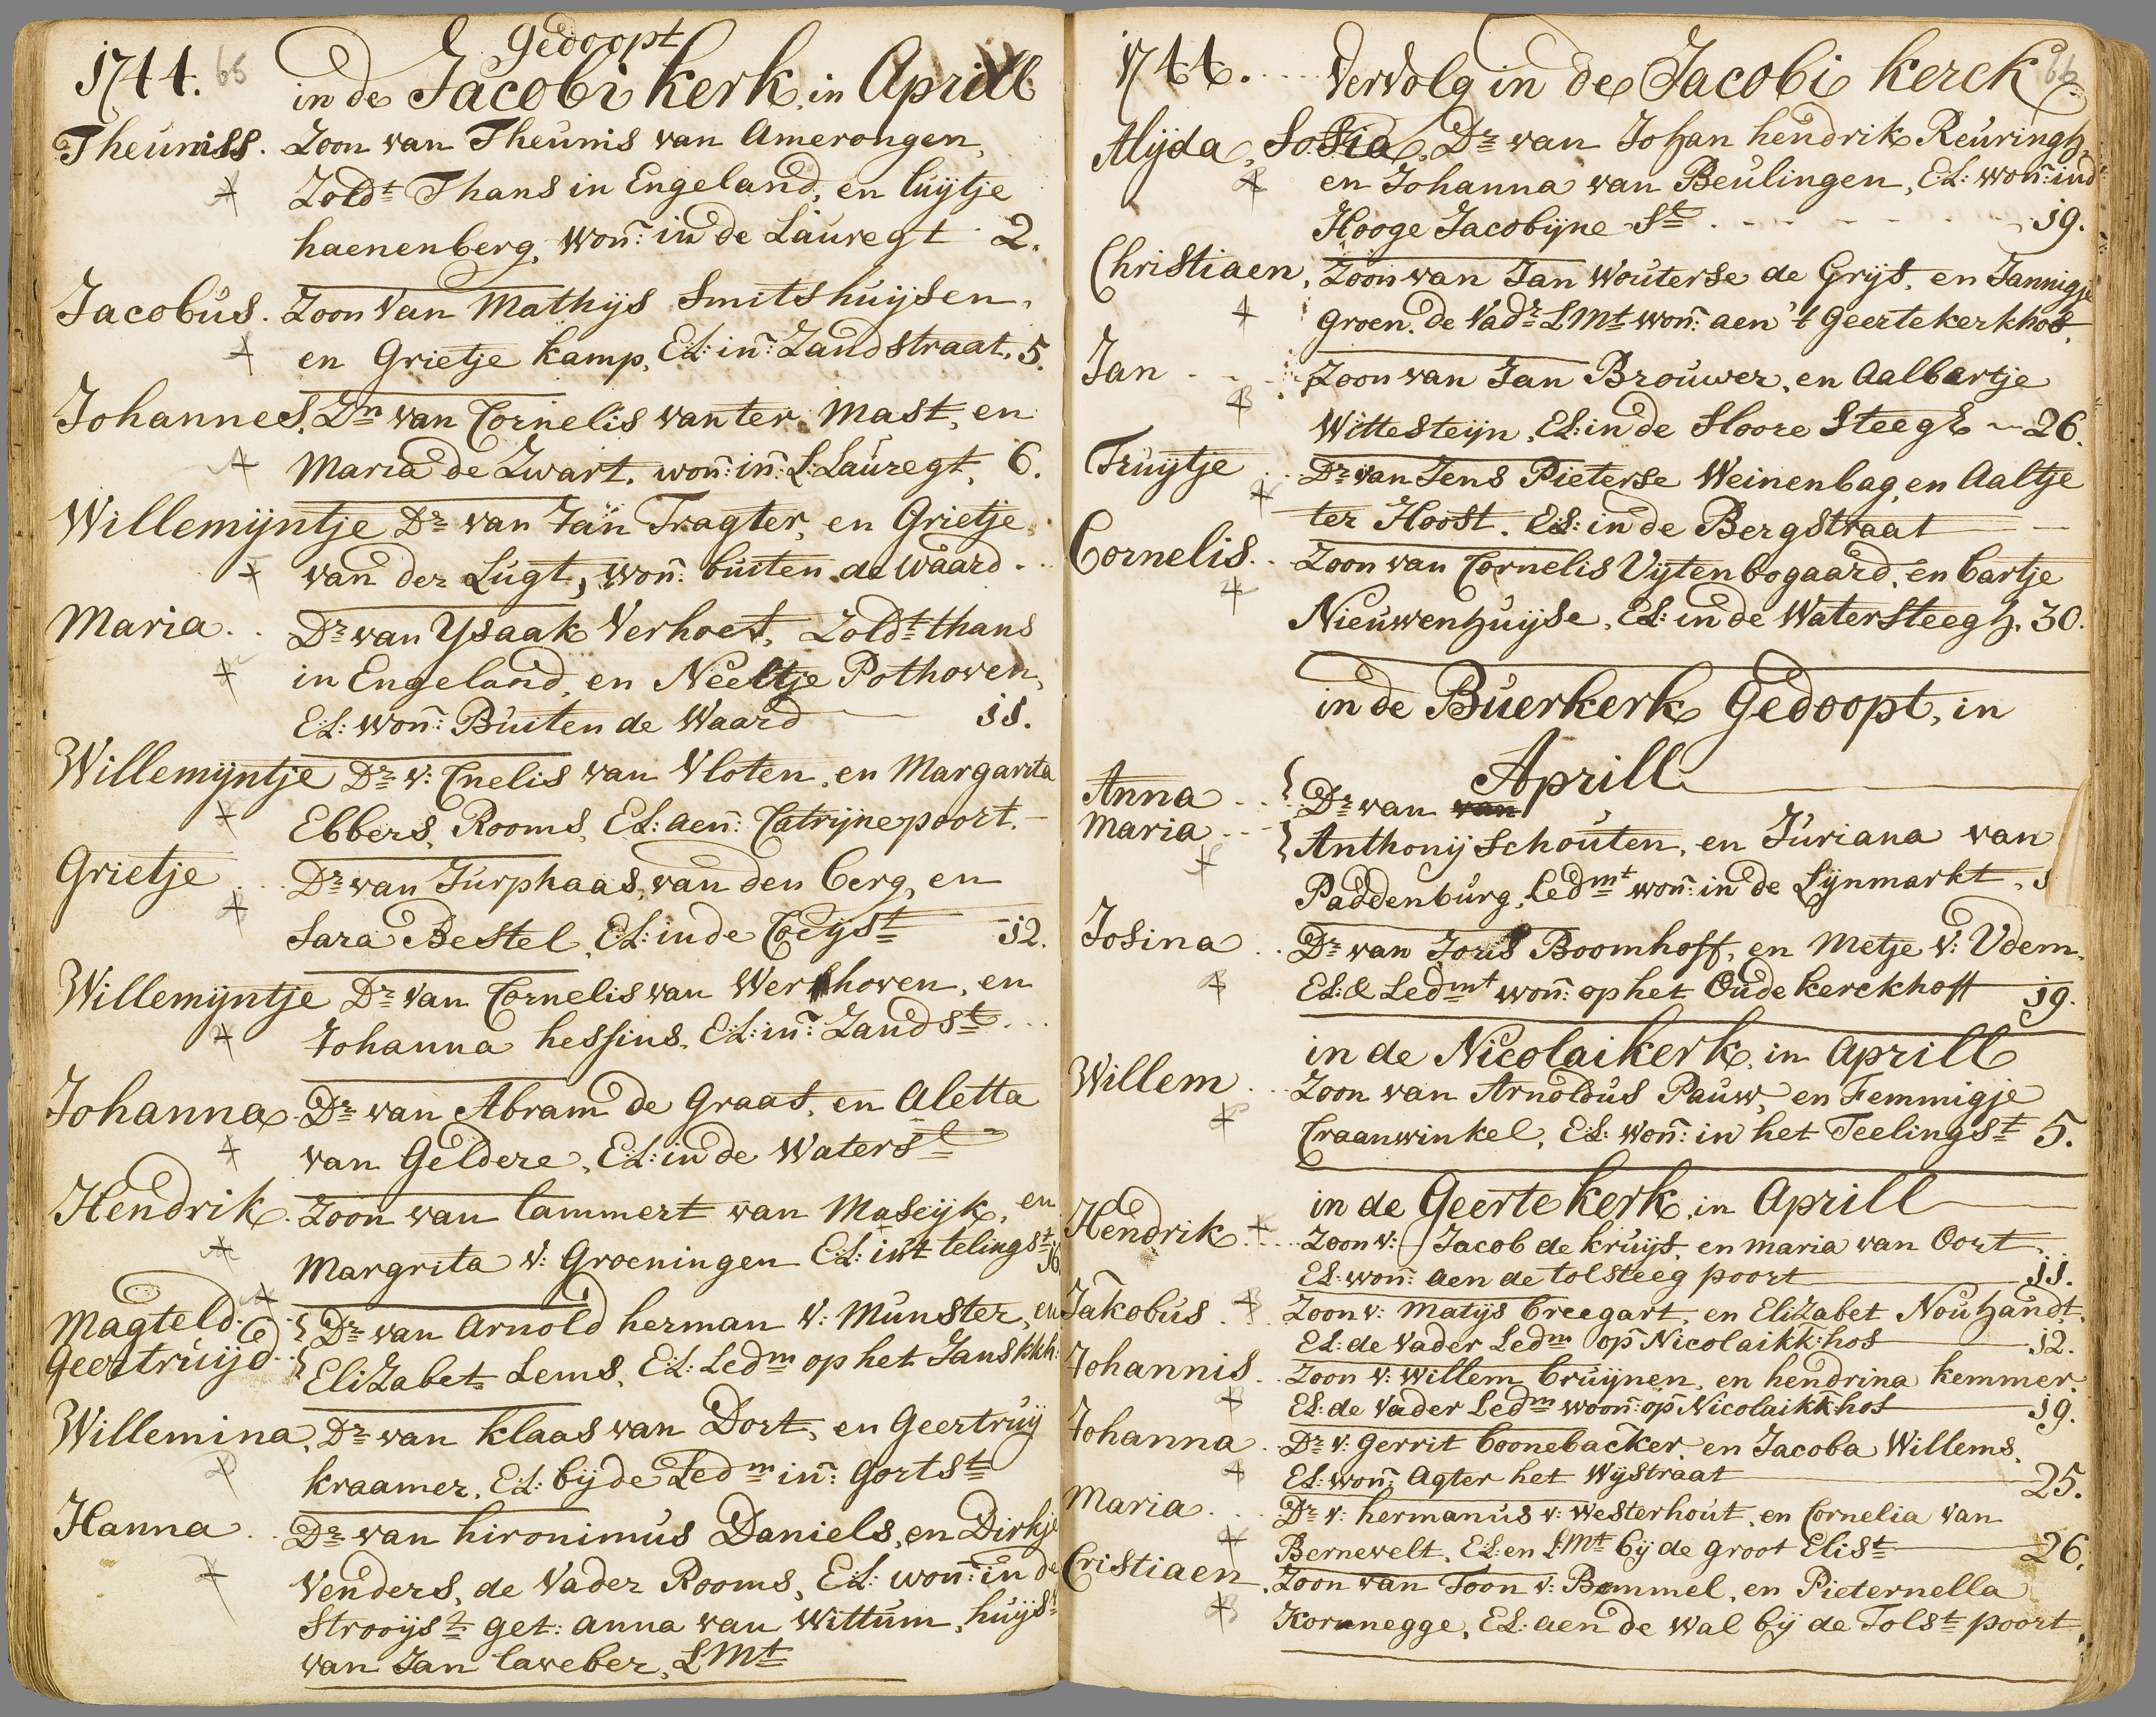 1744. 65 Gedoopt
in de Jacobi kerk, in Aprill
Theuniss. Zoon van Theunis van Amerongen,
Zoldt Thans in Engeland, en Luijtje
haenenberg, Won: in de Lauregt 2.
Jacobus. Zoon Van Mathijs Smitshuijsen,
en Grietje kamp, EL: in: Zandstraat. 5.
Johannes. Zn van Cornelis van ter Mast, en
Maria de Zwart. won: in: L: Lauregt, 6.
Willemijntje Dr van Jan Tragter, en Grietje
van der Lugt, won: buiten de Waard
Maria Dr van Ysaak Verhoef, Zoldt thans
in Engeland, en Neeltje Pothoven,
EL: won: Buiten de Waard 11.
Willemijntje Dr v: Cnelis van Vloten, en Margarita
Ebbers, Rooms, EL: aen: Catrijnepoort.
Grietje Dr van Jurphaas, van den berg, en
Sara Bestel, EL: in de 12.
Willemijntje Dr van Cornelis van Werkhoven, en
Johanna hessius. EL: in: Zandst
Johanna Dr van Abram de Graaf, en Aletta
van Geldere, EL: in de Waterst
Hendrik. Zoon van Lammert van Maseijk, en
Margrita v: Groeningen EL: in't telingst 16
Magteld { Dr van Arnold herman v: Munster, en
Geertruijd { Elizabet Lems, EL: Ledm op het Jans kkh:
Willemina, Dr van klaas van Dort, en Geertruij
kraamer, EL: bij de Ledm in: Gortst
Hanna Dr van hironimus Daniels, en Dirkje
Venders, de Vader Rooms, EL: won: in de
Strooijst get: Anna van Wittum, huijst
van Jan Laveber, LMt
1744. Vervolg in de Jacobi kerck 66
Alijda, Sofia, Dr van Johan hendrik Reuringh,
en Johanna van Beulingen, EL: won: in d
Hooge Jacobijne St 19.
Christiaen, Zoon van Jan Wouterse de Grijs, en Jannigje
Groen. de Vadr LMt won: aen 't Geertekerkhof,
Jan Zoon van Jan Brouwer, en Aalbertje
Wittesteijn, EL: in de Hoore Steegh 26.
Truijtje Dr van Jens Pieterse Weinenbag, en Aaltje
ter Hoost. EL: in de Bergstraat
Cornelis. Zoon van Cornelis Uijtenbogaard, en Bartje
Nieuwenhuijse, EL: in de Watersteegh. 30.
in de Buerkerk Gedoopt, in
Aprill
Anna { Dr van van
Maria { Anthonij Schouten, en Juriana van
Paddenburg, Ledmt won: in de Lijnmarkt,
Josina Dr van Joris Boomhoff, en Metje v: Udem,
EL: & Ledmt won: op het Oude kerckhoff 19.
in de Nicolaikerk, in Aprill
Willem Zoon van Arnoldus Pauw, en Femmigje
Craanwinkel, EL: won: in het Teelingst 5.
in de Geerte kerk, in Aprill
Hendrik Zoon v: Jacob de kruijf, en maria van Oort
EL: won: aen de tolsteeg poort 11.
Jakobus Zoon v: Matijs Breegart, en Elizabet Nouhandt.
EL: de Vader Ledm op Nicolaikk:hof 12.
Johannis Zoon v: Willem Bruijnen, en hendrina kemmer.
EL: de Vader Ledm woon: op Nicolaikk:hof 19.
Johanna Dr v: Gerrit Boonebacker en Jacoba Willems,
EL: won: Agter het Wijstraat 25.
Maria Dr v: hermanus v: Westerhout, en Cornelia van
Bernevelt, EL: en LMt bij de groot Elist 26.
Cristiaen Zoon van Toon v: Bommel, en Pieternella
Korunegge, EL: aen de Wal bij de Tolst poort